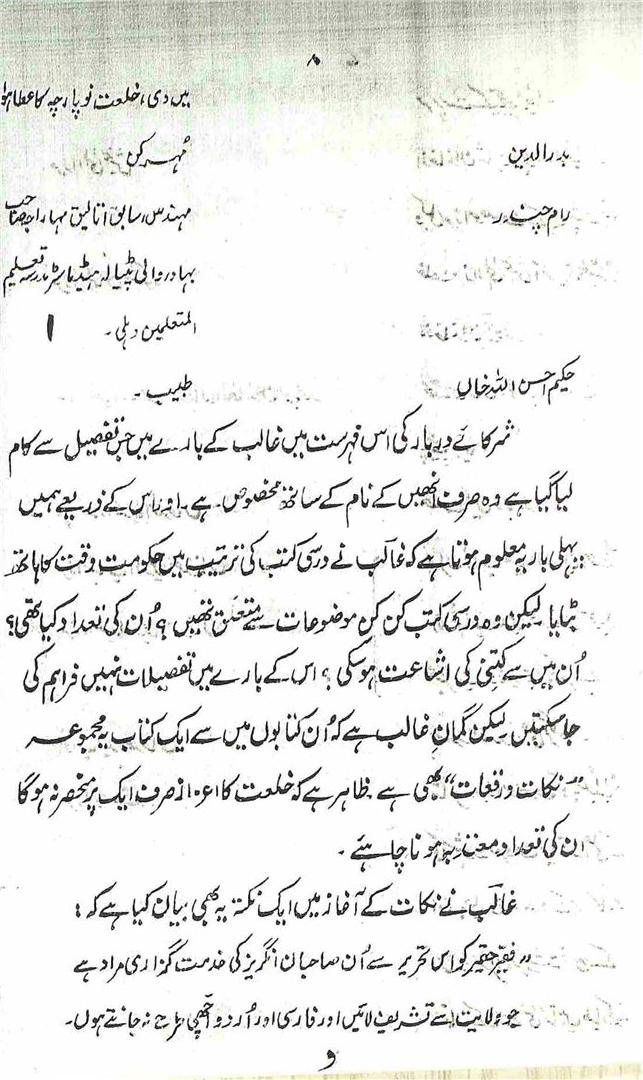 ۸
میں دی، خلعت نو پارچہ کا عطا ہوا
بدرالدین مُہر کن
رام چندر مہندس، سابق اتالیق مہاراجہ صاحب
بہادر والی پٹیالہ ہیڈ ماسٹر مدرسہ تعلیم
المتعلمین دہلی۔
حکیم احسن اللہ خاں طبیب۔
شرکائے دربار کی اس فہرست میں غالب کے بارے میں جس تفصیل سے کام
لیا گیا ہے وہ صرف انھیں کے نام کے ساتھ مخصوص ہے۔ اور اس کے ذریعے ہمیں
پہلی بار یہ معلوم ہوتا ہے کہ غالب نے درسی کتب کی ترتیب میں حکومت وقت کا ہاتھ
بٹایا لیکن وہ درسی کتب کن کن موضوعات سے متعلق تھیں؟ اُن کی تعداد کیا تھی؟
اُن میں سے کتنی کی اشاعت ہو سکی؟ اس کے بارے میں تفصیلات نہیں فراہم کی
جا سکتیں لیکن گمان غالب ہے کہ اُن کتابوں میں سے ایک کتاب یہ مجموعہ
”نکات و رقعات“ بھی ہے ظاہر ہے کہ خلعت کا اعزاز صرف ایک پر منحصر نہ ہوگا
ان کی تعداد معتدبہ ہونا چاہئے۔
غالب نے نکات کے آغاز میں ایک نکتہ یہ بھی بیان کیا ہے کہ:
”فقیر حقیر کو اس تحریر سے اُن صاحبان انگریز کی خدمت گزاری مراد ہے
جو ولایت سے تشریف لائیں اور فارسی اور اُردو اچھی طرح نہ جانتے ہوں۔
و